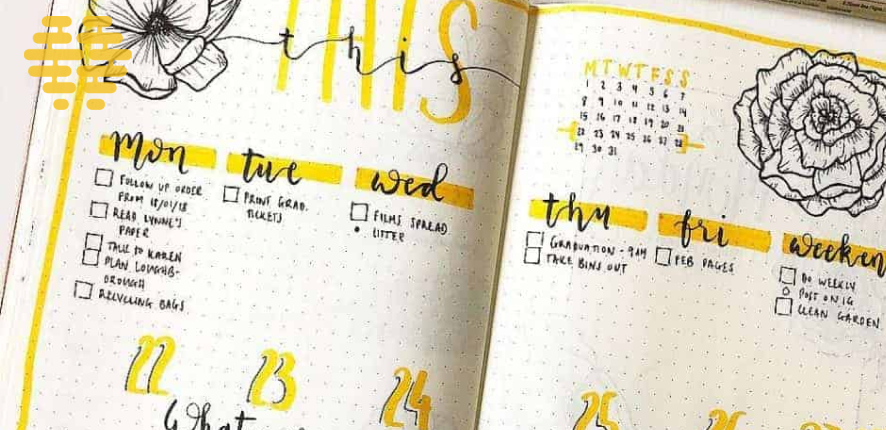 THIS
this
mon
FOLLOW UP ORDER
FROM 18/01/18
READ LYNNE'S
PAPER
TALK TO KAREN
PLAN LOUGHB-
OROUGH
RECYCLING BAGS
tue
PRINT GRAD.
TICKETS
wed
FILMS SPREAD
LITTER
22
23
24
What
M T W T F S S
1 2 3 4 5 6 7
8 9 10 11 12 13 14
15 16 17 18 19 20 21
22 23 24 25 26 27 28
29 30 31
thu
GRADUATION - 9AM
TAKE BINS OUT
fri
FEB PAGES
weeken
DO WEEKLY
POST ON IG
CLEAN GARDEN
25
26